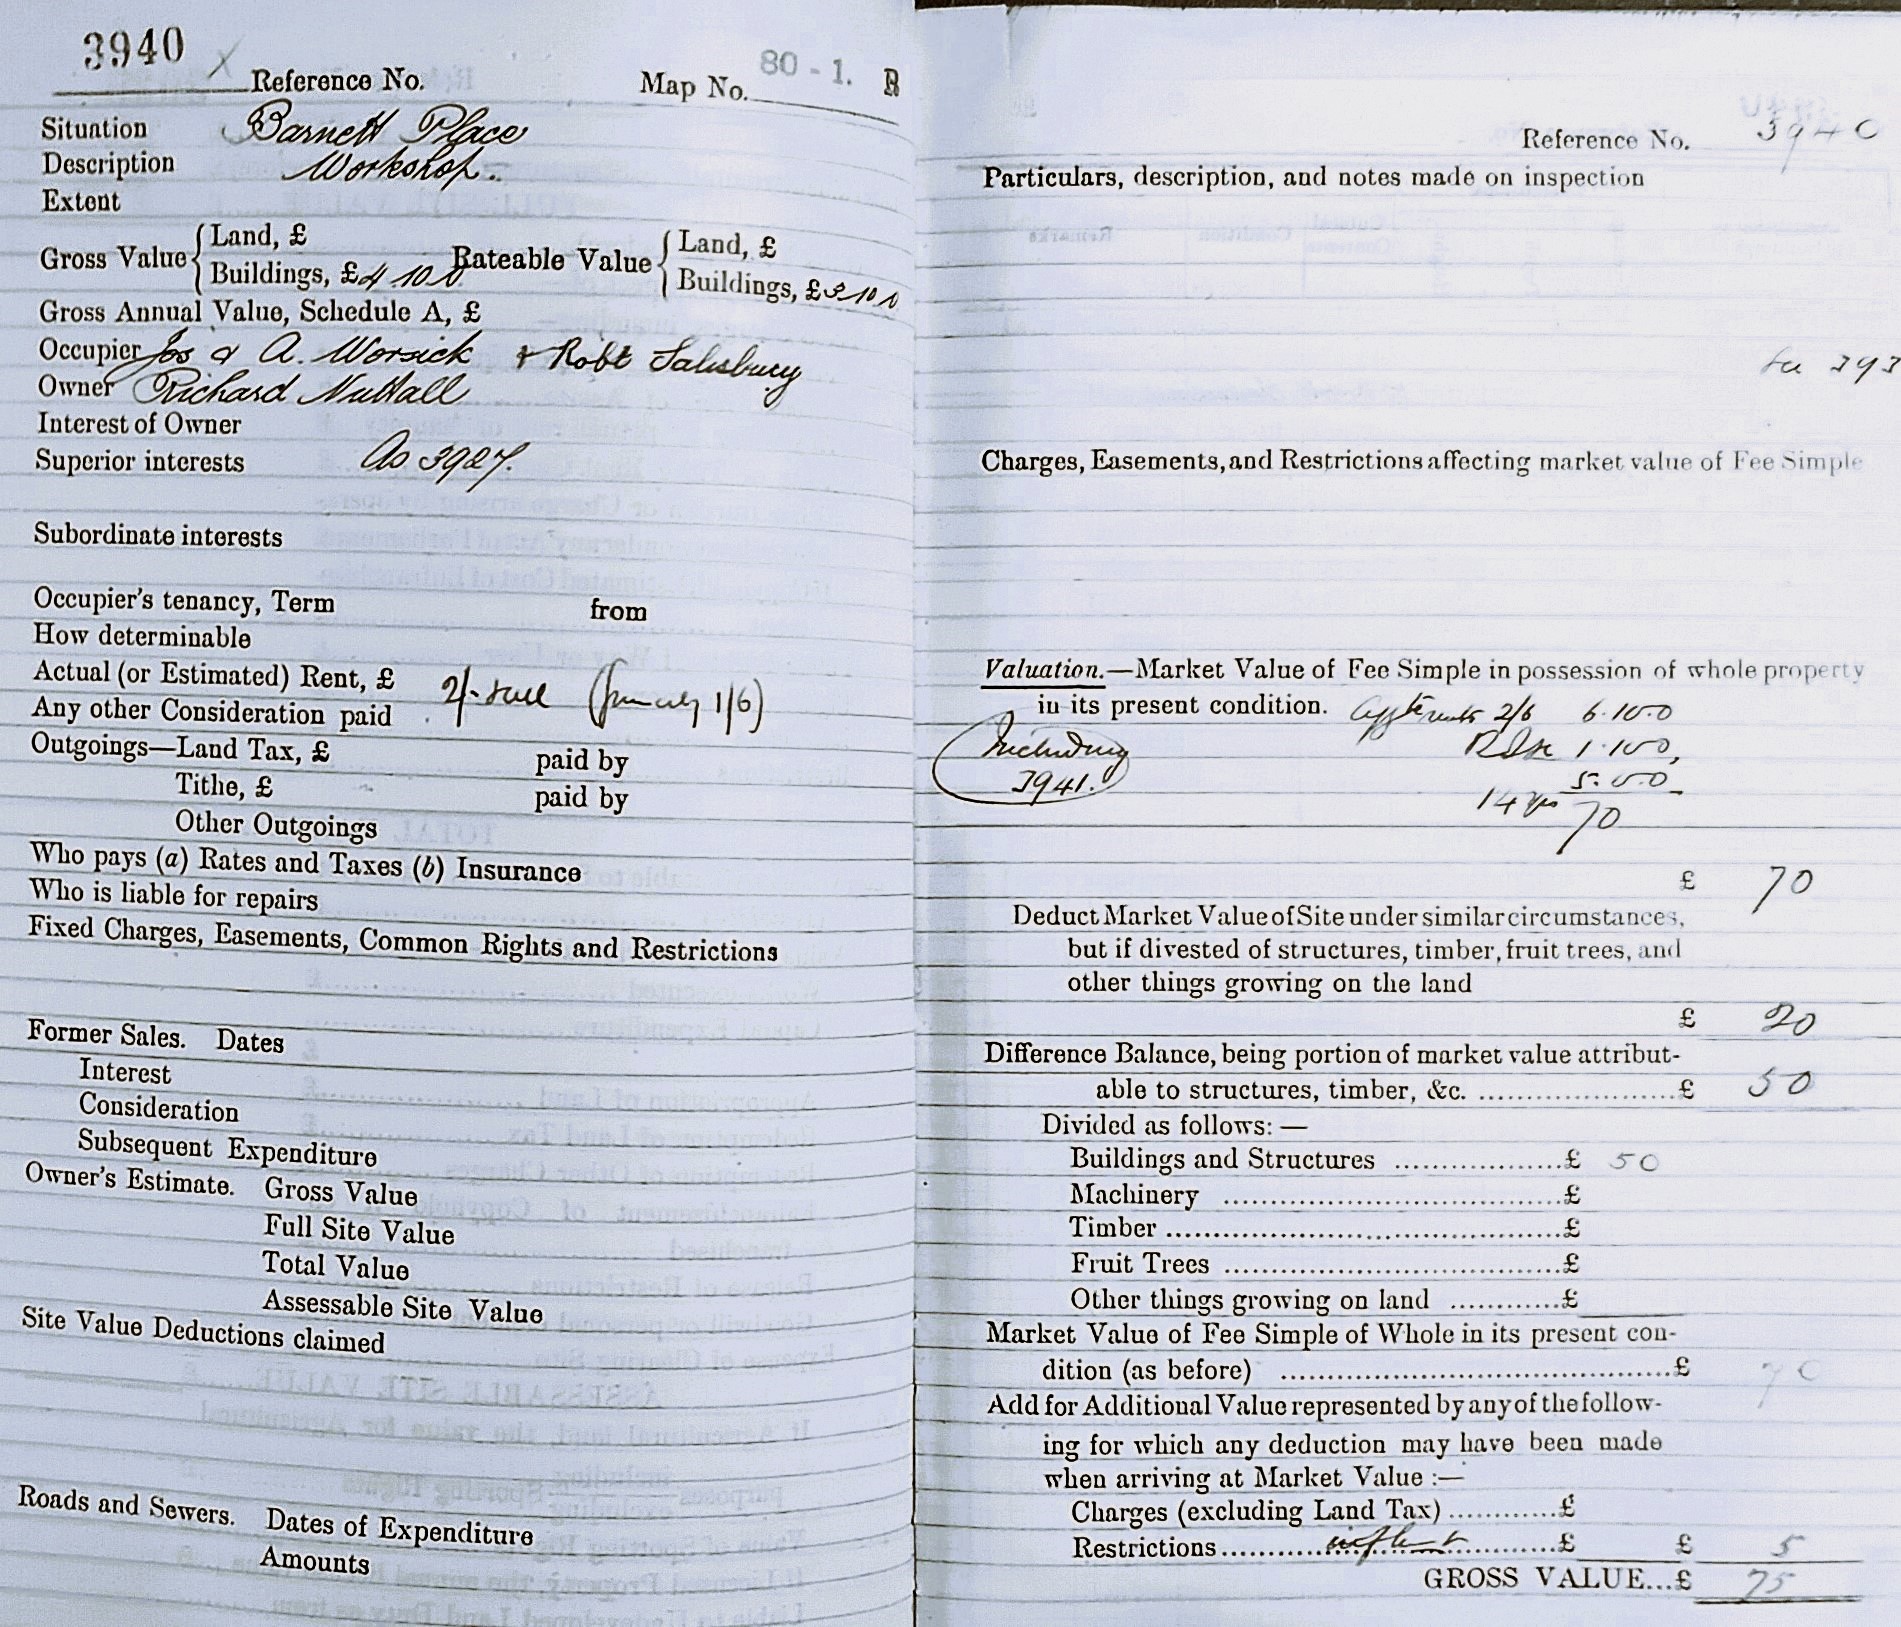 3940 X Reference No. Map No. 80 - 1. B
Situation Barnett Place
Description Workshop.
Extent
Gross Value { Land, £
Buildings, £ 4.10.0
Rateable Value { Land, £
Buildings, £ 3.10.0
Gross Annual Value, Schedule A, £
Occupier Jos & A. Worsick & Robt Salisbury
Owner Richard Nuttall
Interest of Owner
Superior interests As 3927.
Subordinate interests
Occupier's tenancy, Term from
How determinable
Actual (or Estimated) Rent, £ 2/- (formerly 1/6)
Any other Consideration paid
Outgoings—Land Tax, £ paid by
Tithe, £ paid by
Other Outgoings
Who pays (a) Rates and Taxes (b) Insurance
Who is liable for repairs
Fixed Charges, Easements, Common Rights and Restrictions
Former Sales. Dates
Interest
Consideration
Subsequent Expenditure
Owner's Estimate. Gross Value
Full Site Value
Total Value
Assessable Site Value
Site Value Deductions claimed
Roads and Sewers. Dates of Expenditure
Amounts
Reference No. 3940
Particulars, description, and notes made on inspection
393
Charges, Easements, and Restrictions affecting market value of Fee Simple
Valuation.—Market Value of Fee Simple in possession of whole property
in its present condition. 2/6 6.10.0
Including 1.10.0
3941. 5.0.0
14 yrs 70
£ 70
Deduct Market Value of Site under similar circumstances,
but if divested of structures, timber, fruit trees, and
other things growing on the land
£ 20
Difference Balance, being portion of market value attribut-
able to structures, timber, &c. ......................£ 50
Divided as follows: —
Buildings and Structures ..................£ 50
Machinery ....................................£
Timber ..........................................£
Fruit Trees ....................................£
Other things growing on land ............£
Market Value of Fee Simple of Whole in its present con-
dition (as before) ..........................................£ 70
Add for Additional Value represented by any of the follow-
ing for which any deduction may have been made
when arriving at Market Value :—
Charges (excluding Land Tax) ............£
Restrictions....................................£ £ 5
GROSS VALUE...£ 75